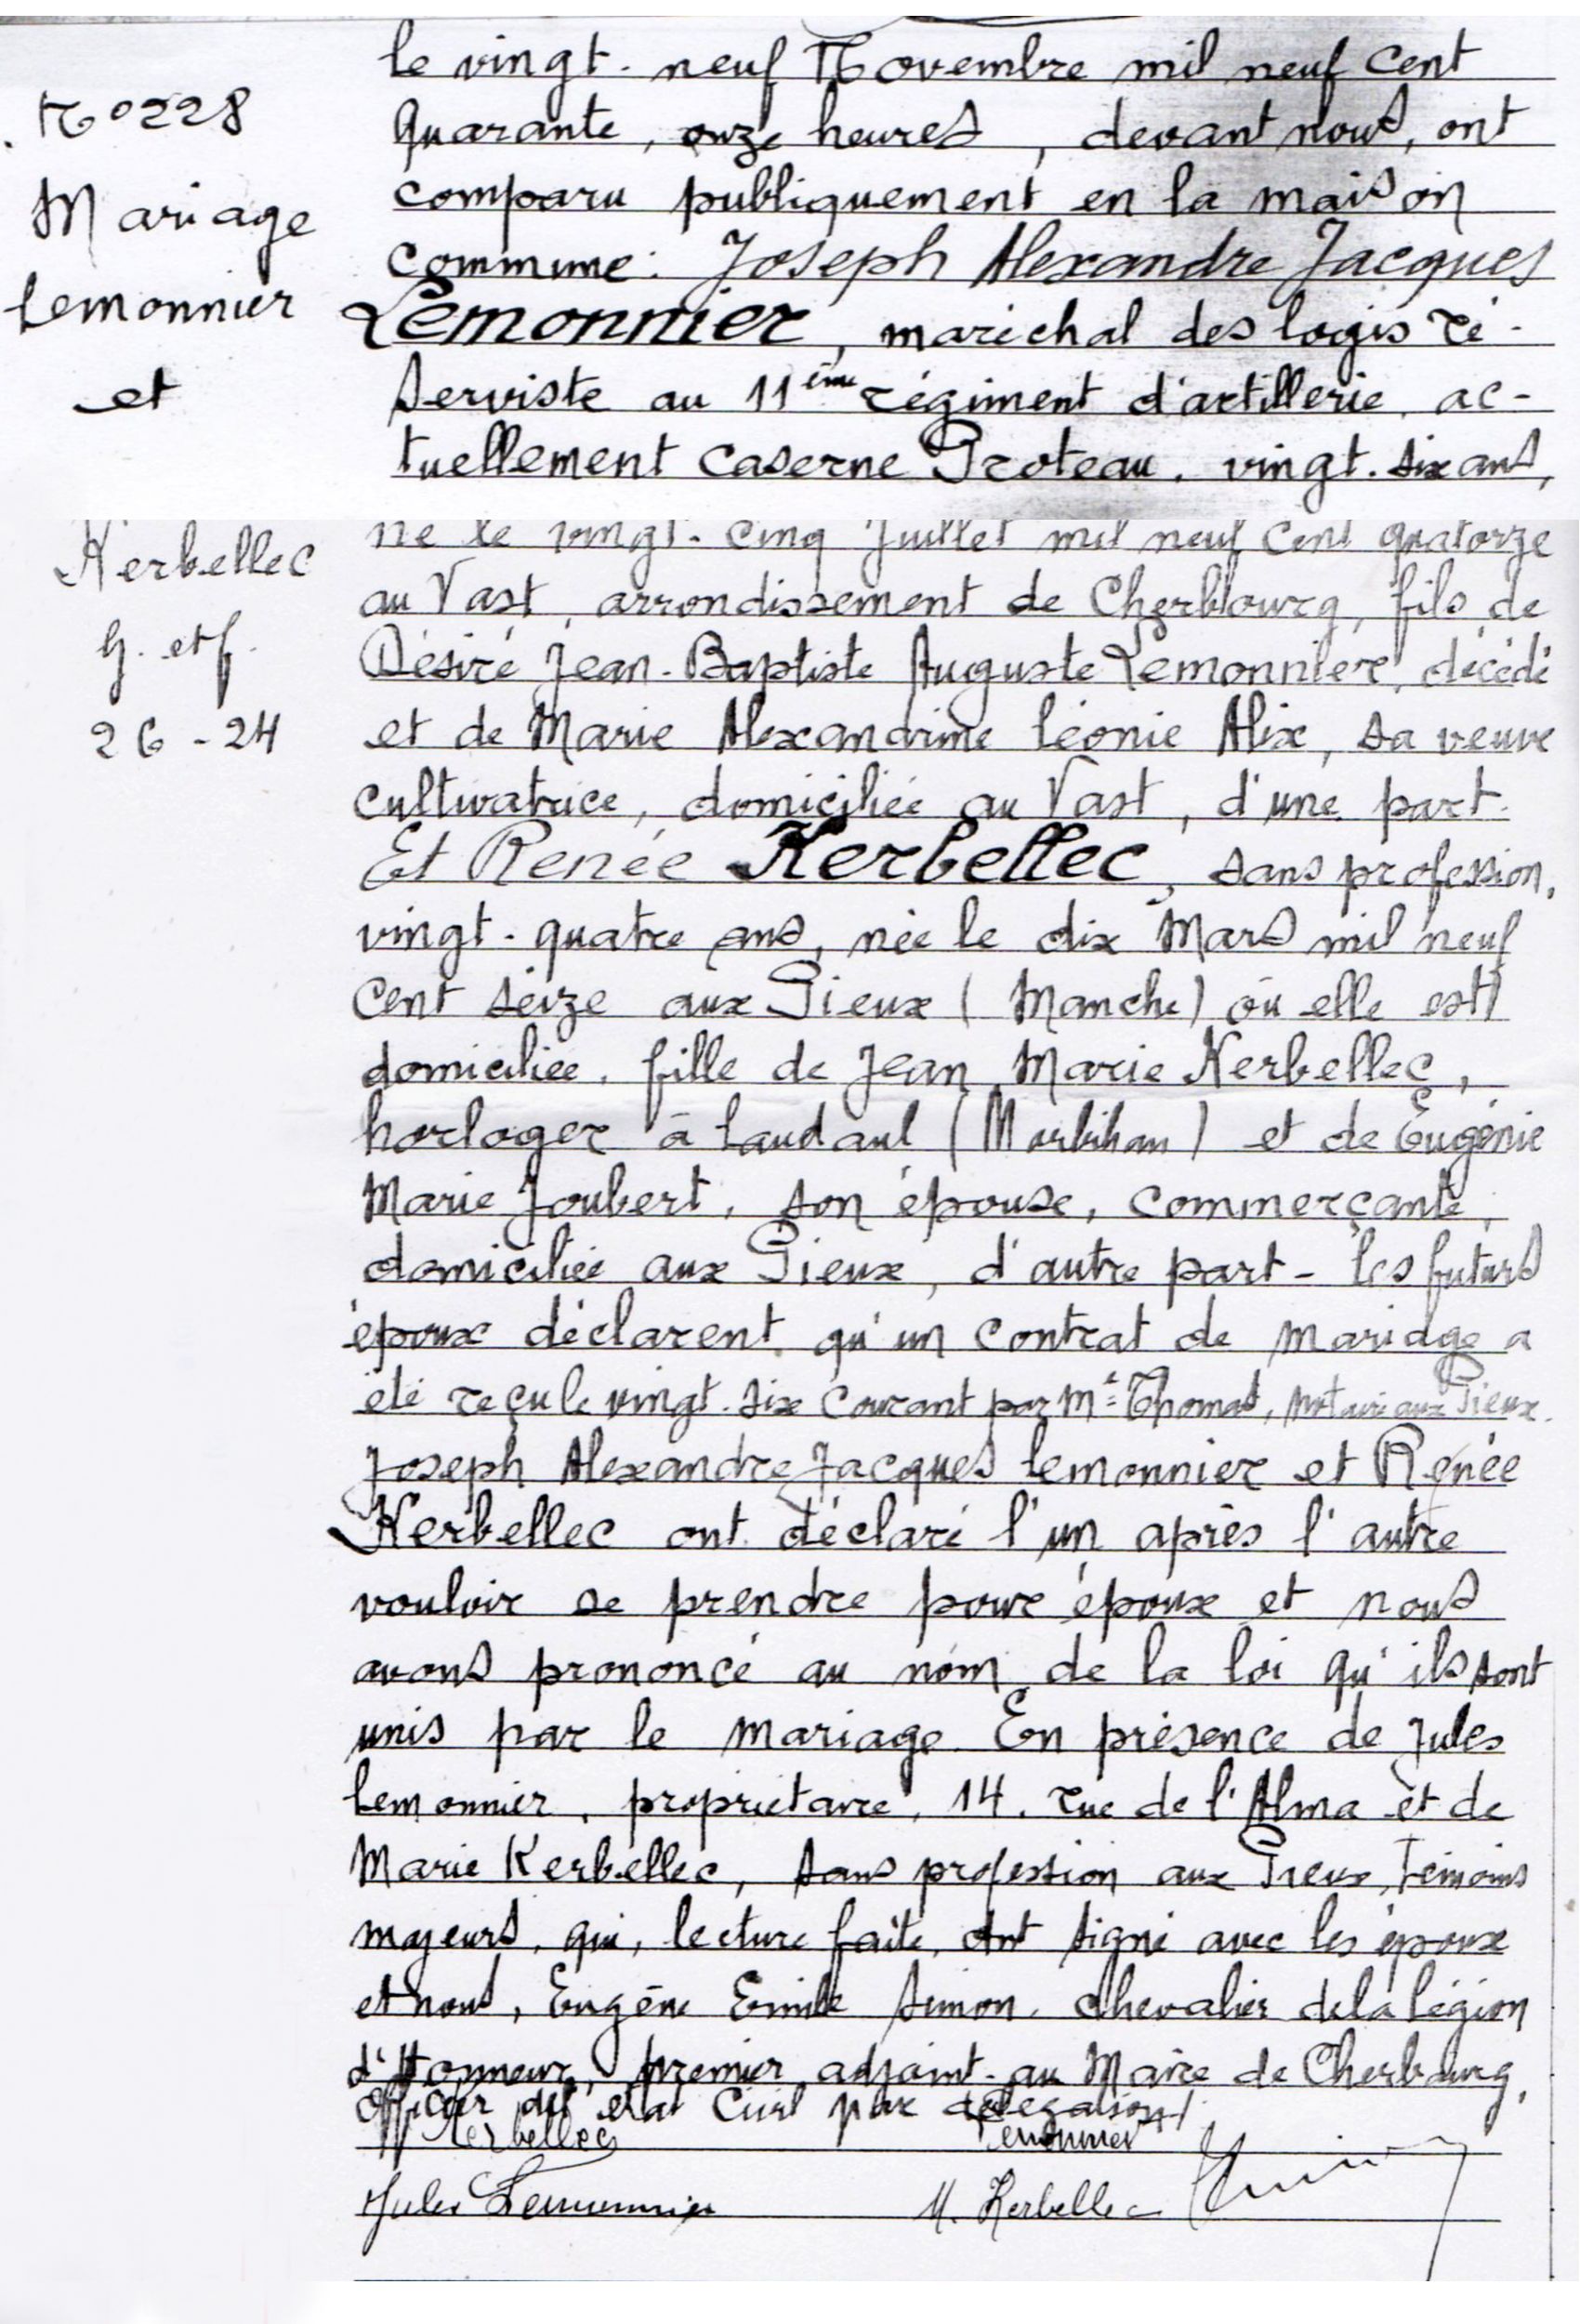 N° 228
Mariage
Lemonnier
et
Kerbellec
G. et f.
26 - 24
le vingt-neuf Novembre mil neuf cent
quarante, onze heures, devant nous, ont
comparu publiquement en la maison
commune: Joseph Alexandre Jacques
Lemonnier, maréchal des logis ré-
serviste au 11ème régiment d'artillerie, ac-
tuellement caserne Proteau, vingt-six ans,
né le vingt-cinq Juillet mil neuf cent quatorze
au Vast, arrondissement de Cherbourg, fils de
Désiré Jean-Baptiste Auguste Lemonnier, décédé
et de Marie Alexandrine Léonie Alix, sa veuve
cultivatrice, domiciliée au Vast, d'une part.
Et Renée Kerbellec, sans profession,
vingt-quatre ans, née le dix Mars mil neuf
cent seize aux Pieux (Manche) où elle est
domiciliée, fille de Jean Marie Kerbellec,
horloger à Landaul (Morbihan) et de Eugénie
Marie Joubert, son épouse, commerçante,
domiciliée aux Pieux, d'autre part - les futurs
époux déclarent qu'un contrat de mariage a
été reçu le vingt-six courant par Me Thomas, notaire aux Pieux.
Joseph Alexandre Jacques Lemonnier et Renée
Kerbellec ont déclaré l'un après l'autre
vouloir se prendre pour époux et nous
avons prononcé au nom de la loi qu'ils sont
unis par le mariage. En présence de Jules
Lemonnier, propriétaire, 14, rue de l'Alma et de
Marie Kerbellec, sans profession aux Pieux, témoins
majeurs, qui, lecture faite, ont signé avec les époux
et nous, Eugène Emile Simon, chevalier de la légion
d'Honneur, premier adjoint au Maire de Cherbourg,
officier de l'état Civil par délégation.
Kerbellec Lemonnier
Jules Lemonnier M. Kerbellec